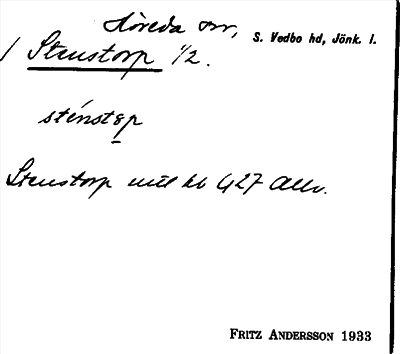 Höreda sn, S. Vedbo hd, Jönk. l.
/ Stenstorp 1/2.
sténstɐp
Stenstorp mtl kb 427 Allm.
FRITZ ANDERSSON 1933